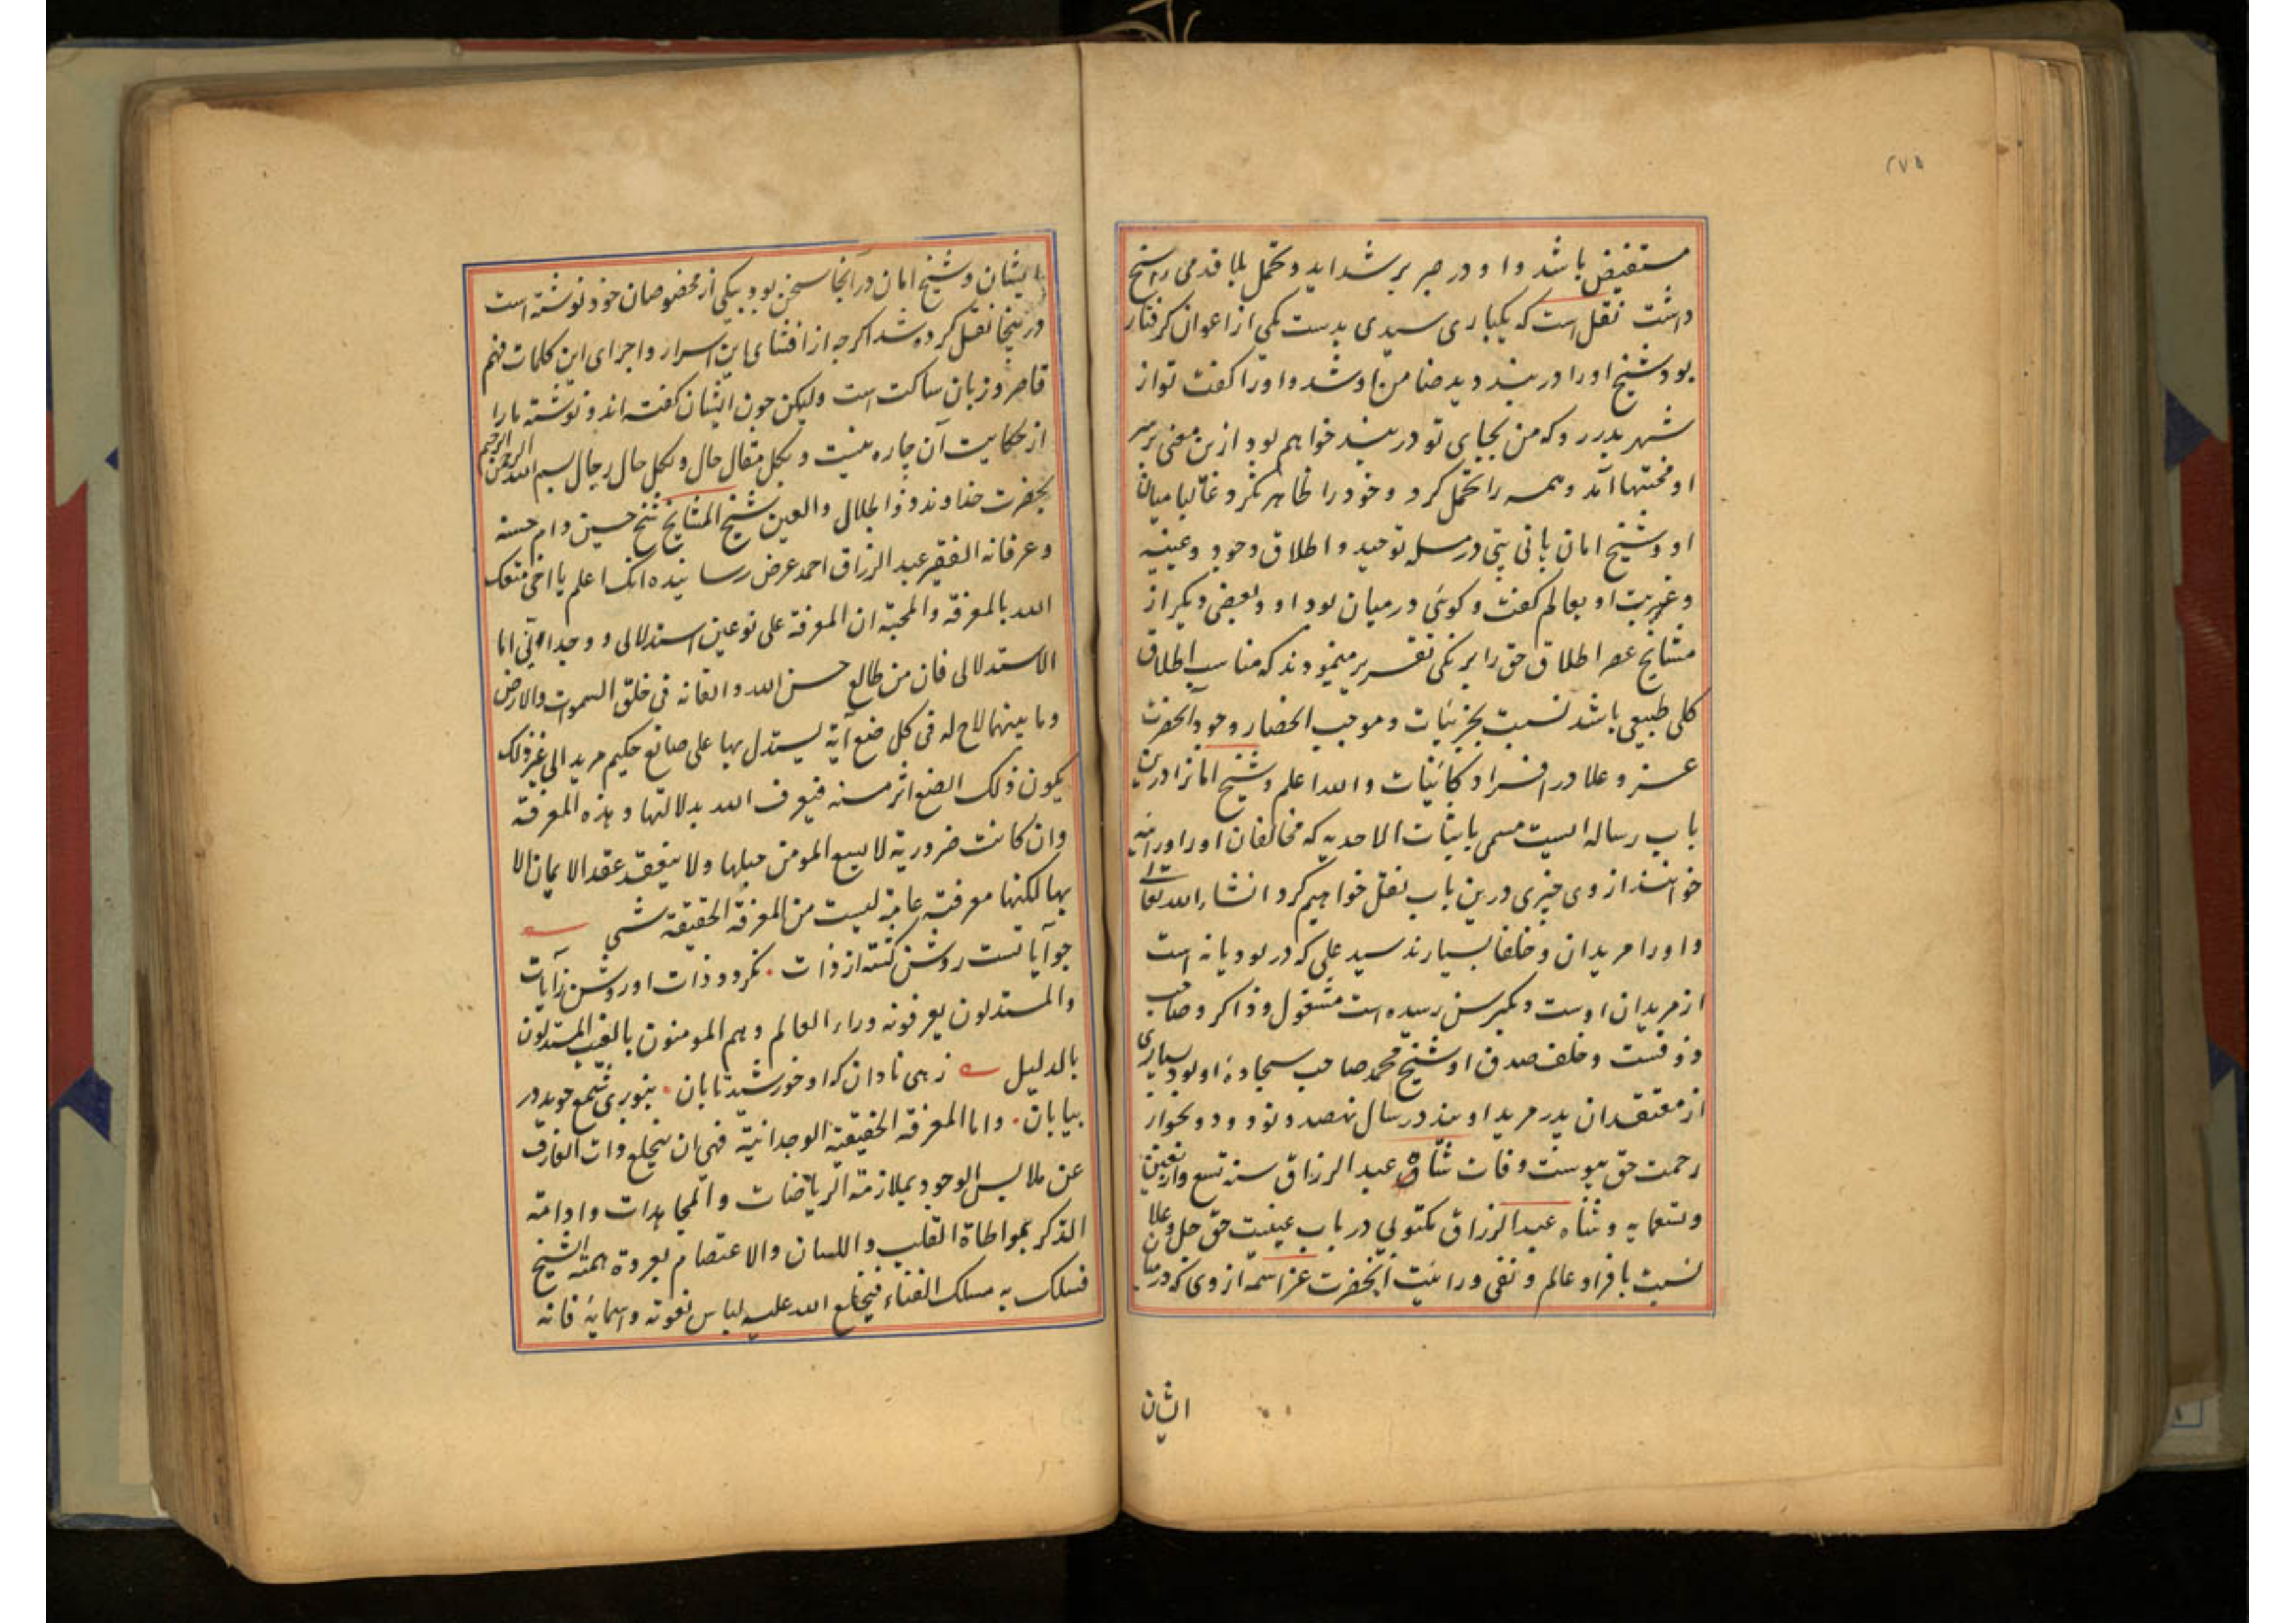 ۲۷۵
مستفیض باشد و او در صبر بر شداید و تحمل بلا قدمی راسخ
داشت نقل است که یکباری سیدی بدست یکی از اعوان کرفتار
بود شیخ او را در بند دید ضامن او شد و او را کفت تو از
شهر بدر رو که من بجای تو در بند خواهم بود ازین معنی بر سر
او محنتها آمد و همه را تحمل کرد و خود را ظاهر نکرد غالبا میان
او و شیخ امان پانی پتی در مسله توحید و اطلاق وجود و عینیه
و غیریت او بعالم کفت و کوئی در میان بود او و بعضی دیکر از
مشایخ عصر اطلاق حق را برنکی تقریر مینمودند که مناسب اطلاق
کلی طبیعی باشد نسبت بجزئیات و موجب انحصار وجود آنحضرت
عز و علا در افراد کائینات والله اعلم و شیخ امانرا درین
باب رساله ایست مسمی باثبات الاحدیه که مخالفان او را
خوانند از وی چیزی درین باب نقل خواهیم کرد انشاءالله تعالی
و او را مریدان و خلفا بسیارند سید علی که در لودیانه است
از مریدان اوست و بکبر سن رسیده است مشغول و ذاکر و صاحب
ذوقست و خلف صدق او شیخ محمد صاحب سجادهٔ او بود بسیاری
از معتقدان پدر مرید اویند در سال نهصد و نود و دو بجوار
رحمت حق پیوست وفات شاه عبد الرزاق سنه تسع واربعین
وتسعمایه و شاه عبدالرزاق مکتوبی در باب عینیت حق جل وعلا
نسبت بافراد عالم و نفی ورائیت آنحضرت عز اسمه از وی که در میان
ایشان
ایشان و شیخ امان در آنجا سخن بود بیکی از مخصوصان خود نوشته است
درینجا نقل کرده شد اکرچه از افشای این اسرار و اجرای این کلمات فهم
قاصر و زبان ساکت است ولیکن چون ایشان کفته اند و نوشته ما را
از حکایت آن چاره نیست و لکل مقال حال و لکل حال رجال بسم الله الرحمن الرحیم
بحضرت خداوند ذوالجلال شیخ المشایخ شیخ حسین دام حسنه
وعرفانه الفقیر عبد الرزاق احمد عرض رسانیده آنکه اعلم یا اخی متعک
الله بالمعرفة والمحبة ان المعرفة علی نوعین استدلالی و وجدانی اما
الاستدلالی فان من طالع حسن الله واتقانه فی خلق السموات والارض
وما بینهما لاح له فی کل صنع آیة یستدل بها علی صانع حکیم مرید الی غیر ذلک
یکون ذلک الصنع اثر منه فیعرف الله بدلالتها و هذه المعرفة
وان کانت ضروریة لا یسع المومن جهلها ولا ینعقد عقد الایمان الا
بها لکنها معرفة عامة لیست من المعرفة الحقیقة شیء
چو آیاتست روشن کشته از ذات ۰ نکردد ذات او روشن ز آیات
والمستدلون یعرفونه وراء العالم وهم المومنون بالغیب المستدلون
بالدلیل زهی نادان که او خورشید تابان ۰ بنور شمع جوید در
بیابان ۰ واما المعرفة الحقیقیة الوجدانیة فهی ان ینخلع ذات العارف
عن ملابس الوجود بملازمة الریاضات والمجاهدات وادامة
الذکر بمواطاة القلب واللسان والاعتصام بعروة همة الشیخ
فسلک به مسلک الفناء فیخلع الله علیه لباس نعوته واسمایه فانه